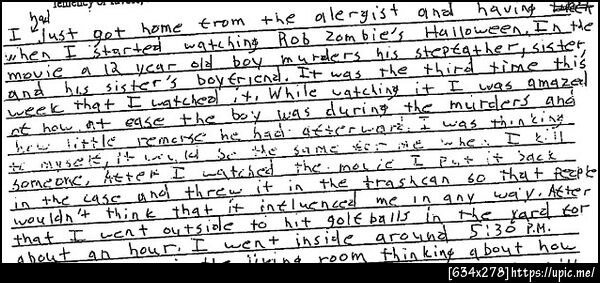 had
I just got home from the alergist and having
when I started watching Rob Zombie's Halloween. In the
movie a 12 year old boy murders his stepfather, sister,
and his sister's boyfriend. It was the third time this
week that I watched it. While watching it I was amazed
at how at ease the boy was during the murders and
how little remorse he had afterward. I was thinking
to myself, it would be the same for me when I kill
someone. After I watched the movie I put it back
in the case and threw it in the trashcan so that people
wouldn't think that it influenced me in any way. After
that I went outside to hit golf balls in the yard for
about an hour. I went inside around 5:30 P.M.
the living room thinking about how
[634x278]https://upic.me/